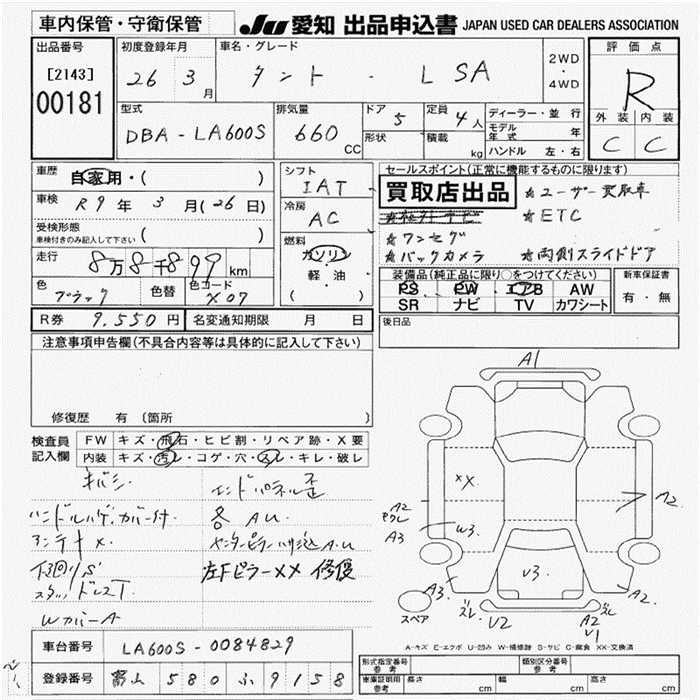 車内保管・守衛保管
JU 愛知 出品申込書 JAPAN USED CAR DEALERS ASSOCIATION
出品番号
[2143]
00181
初度登録年月
26 3月
車名・グレード
タント . L SA
2WD
・
4WD
評価点
R
外装 内装
C C
型式
DBA-LA600S
排気量
660 CC
ドア 5
形状
定員 4人
積載 kg
ディーラー・並行
モデル年式 年
ハンドル 左・右
車歴
自家用・( )
車検 R9年 3月(26日)
受検形態
車検付きのみ記入して下さい ( )
走行 8万8千899km
色 ブラック
色替
色コード X07
シフト
IAT
冷房
AC
燃料
ガソリン
軽・油
( )
セールスポイント(正常に機能するものに限ります)
買取店出品
☆ユーザー買取車
☆ETC
☆ワンセグ
☆バックカメラ ☆両側スライドドア
装備品(純正品に限り○をつけてください)
PS PW エアB AW
SR ナビ TV カワシート
新車保証書
有・無
R券 9,550円 名変通知期限 月 日
後日品
注意事項申告欄(不具合内容等は具体的に記入して下さい)
修復歴 有 〔箇所
検査員記入欄
FW キズ・飛石・ヒビ割・リペア跡・X要
内装 キズ・汚レ・コゲ・穴・スレ・キレ・破レ
キバミ エンドパネル歪
ハンドルハゲ.カバー付. 各AU.
アンテナX センターピラー
下回りS 左Fピラー××修復
WカバーA
A1
XX
A2
A3
W3
V3
A2
A3
ズレ
U2
A2
V1
ズレ
A2
スペア
A-キズ E-エクボ U-凹み W-補修跡 S-サビ C-腐食 XX-交換済
車台番号 LA600S-0084829
登録番号 富山 580 ふ 9158
型式指定番号 参考
類別区分番号 参考
車庫証明用 参考 長さ cm 幅 cm 高さ cm